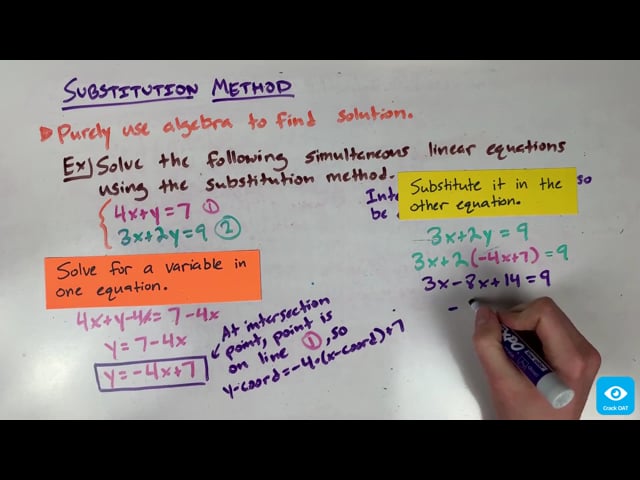 SUBSTITUTION METHOD
Purely use algebra to find solution.
Ex) Solve the following simultaneous linear equations
using the substitution method.
4x+y=7 ①
3x+2y=9 ②
Solve for a variable in
one equation.
4x+y-4x=7-4x
y=7-4x
y=-4x+7
At intersection
point, point is
on line ①, so
y-coord=-4·(x-coord)+7
so
be
Substitute it in the
other equation.
3x+2y=9
3x+2(-4x+7)=9
3x-8x+14=9
-
Crack OAT